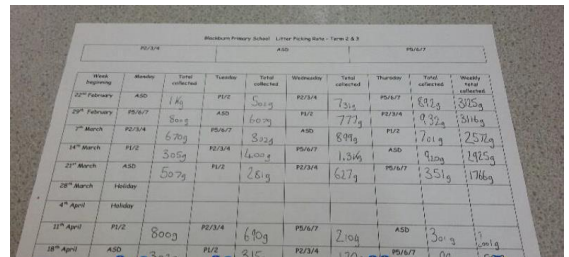 Blackburn Primary School Litter Picking Rota - Term 2 & 3
P2/3/4 ASD P5/6/7
Week beginning Monday Total collected Tuesday Total collected Wednesday Total collected Thursday Total collected Weekly total collected
22nd February ASD 1kg P1/2 502g P2/3/4 731g P5/6/7 892g 3125g
29th February P5/6/7 800g ASD 607g P1/2 777g P2/3/4 932g 3116g
7th March P2/3/4 670g P5/6/7 302g ASD 899g P1/2 701g 2572g
14th March P1/2 305g P2/3/4 1400g P5/6/7 1.3kg ASD 920g
21st March ASD 507g P1/2 281g P2/3/4 627g P5/6/7 351g 1766g
28th March Holiday
4th April Holiday
11th April P1/2 800g P2/3/4 690g P5/6/7 210g ASD 301g
18th April ASD P1/2 P2/3/4 P5/6/7